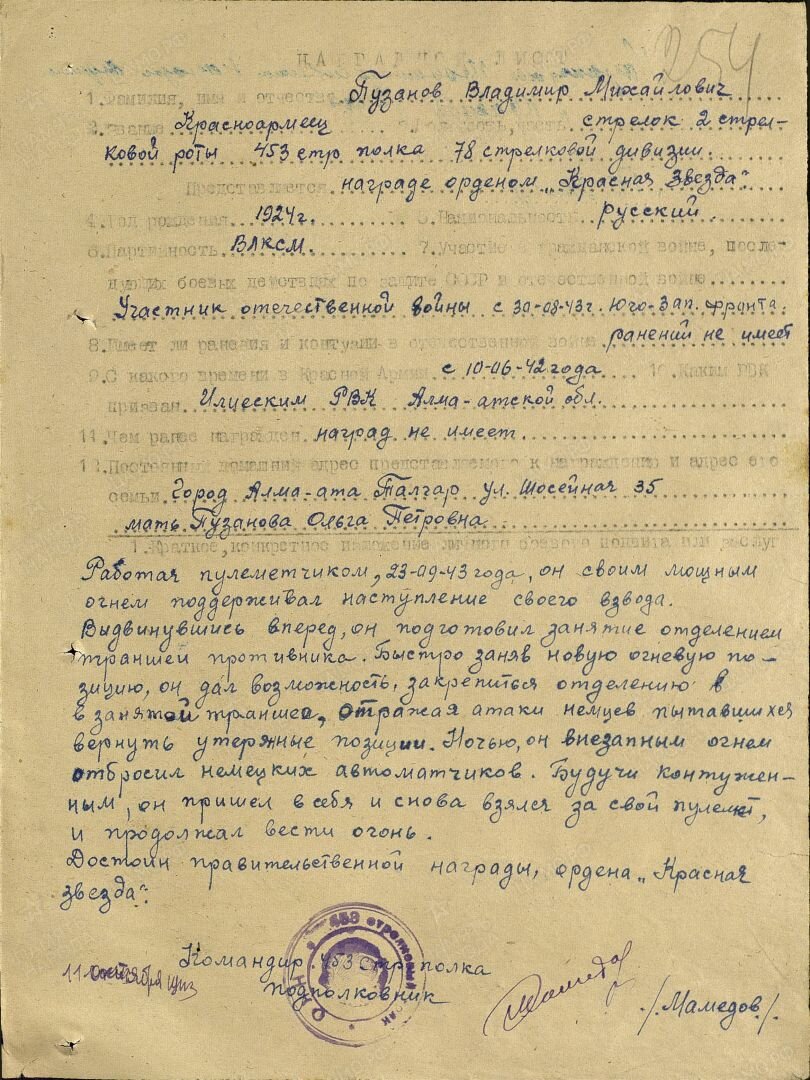 НАГРАДНОЙ ЛИСТ
254
1. Фамилия, имя и отчество Пузанов Владимир Михайлович
2. Звание Красноармеец стрелок 2 стрел-
ковой роты 453 стр полка 78 стрелковой дивизии.
Представляется награде орденом „Красная Звезда".
4. Год рождения 1924г. 5. Национальность русский.
6. Партийность ВЛКСМ. 7. Участие в гражданской войне, после-
дующих боевых действиях по защите СССР и отечественной войне
Участник отечественной войны с 30-08-43г. Юго-Зап. фронта.
8. Имеет ли ранения и контузии в отечественной войне ранений не имеет
9. С какого времени в Красной Армии с 10-06-42 года 10. Каким РВК
призван Илцеским РВК Алма-атской обл.
11. Чем ранее награжден наград не имеет
12. Постоянный домашний адрес представляемого к награждению и адрес его
семьи Город Алма-ата Талгар ул. Шосейная 35
мать Пузанова Ольга Петровна
1. Краткое, конкретное изложение личного боевого подвига или заслуг
Работая пулеметчиком, 23-09-43 года, он своим мощным
огнем поддерживал наступление своего взвода.
Выдвинувшись вперед, он подготовил занятие отделением
траншей противника. Быстро заняв новую огневую по-
зицию, он дал возможность, закрепиться отделению в
в занятой траншее, отражая атаки немцев пытавшихся
вернуть утерянные позиции. Ночью, он внезапным огнем
отбросил немецких автоматчиков. Будучи контужен-
ным, он пришел в себя и снова взялся за свой пулемет,
и продолжал вести огонь.
Достоин правительственной награды, ордена „Красная
звезда".
453 стрелковый
Командир 453 стр полка
11 октября
подполковник
/Мамедов/.